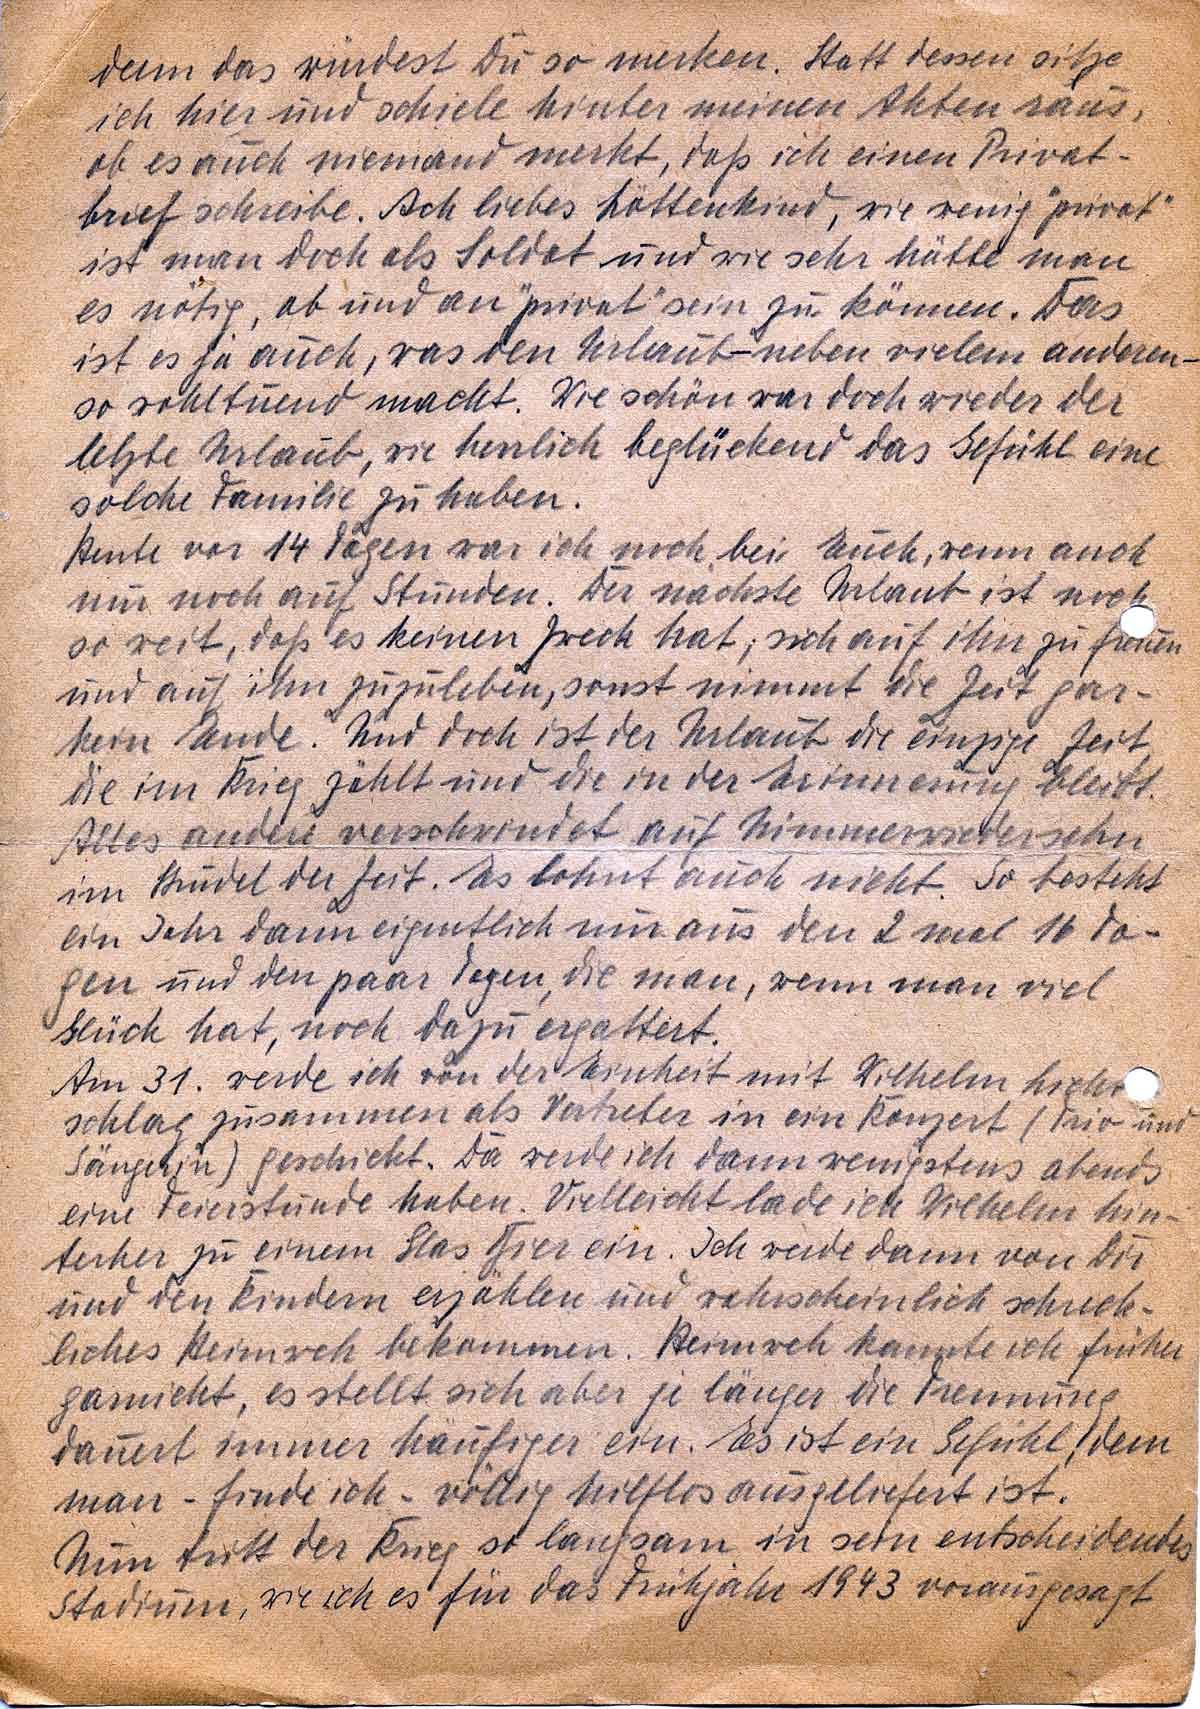 denn das würdest Du so merken. Statt dessen sitze
ich hier und schiele hinter meinen Akten raus,
ob es auch niemand merkt, daß ich einen Privat-
brief schreibe. Ach liebes Lottenkind, wie wenig "privat"
ist man doch als Soldat und wie sehr hätte man
es nötig, ab und an "privat" sein zu können. Das
ist es ja auch, was den Urlaub - neben vielem anderen -
so wohltuend macht. Wie schön war doch wieder der
letzte Urlaub, wie herrlich beglückend das Gefühl eine
solche Familie zu haben.
Heute vor 14 Tagen war ich noch bei Euch, wenn auch
nur noch auf Stunden. Der nächste Urlaub ist noch
so weit, daß es keinen Zweck hat, sich auf ihn zu freuen
und auf ihn zuzuleben, sonst nimmt die Zeit gar-
kein Ende. Und doch ist der Urlaub die einzige Zeit,
die im Krieg zählt und die in der Erinnerung bleibt.
Alles andere verschwindet auf Nimmerwiedersehn
im Strudel der Zeit. Es lohnt auch nicht. So besteht
ein Jahr dann eigentlich nur aus den 2 mal 16 Ta-
gen und den paar Tagen, die man, wenn man viel
Glück hat, noch dazu ergattert.
Am 31. werde ich von der Einheit mit Wilhelm
schlag zusammen als Vertreter in ein Konzert (Trio und
Sängerin) geschickt. Da werde ich dann wenigstens abends
eine Feierstunde haben. Vielleicht lade ich Wilhelm hin-
terher zu einem Glas Bier ein. Ich werde dann von Dir
und den Kindern erzählen und wahrscheinlich schreck-
liches Heimweh bekommen. Heimweh kannte ich früher
garnicht, es stellt sich aber je länger die Trennung
dauert immer häufiger ein. Es ist ein Gefühl, dem
man - finde ich - völlig hilflos ausgeliefert ist.
Nun tritt der Krieg so langsam in sein entscheidendes
Stadium, wie ich es für das Frühjahr 1943 vorausgesagt